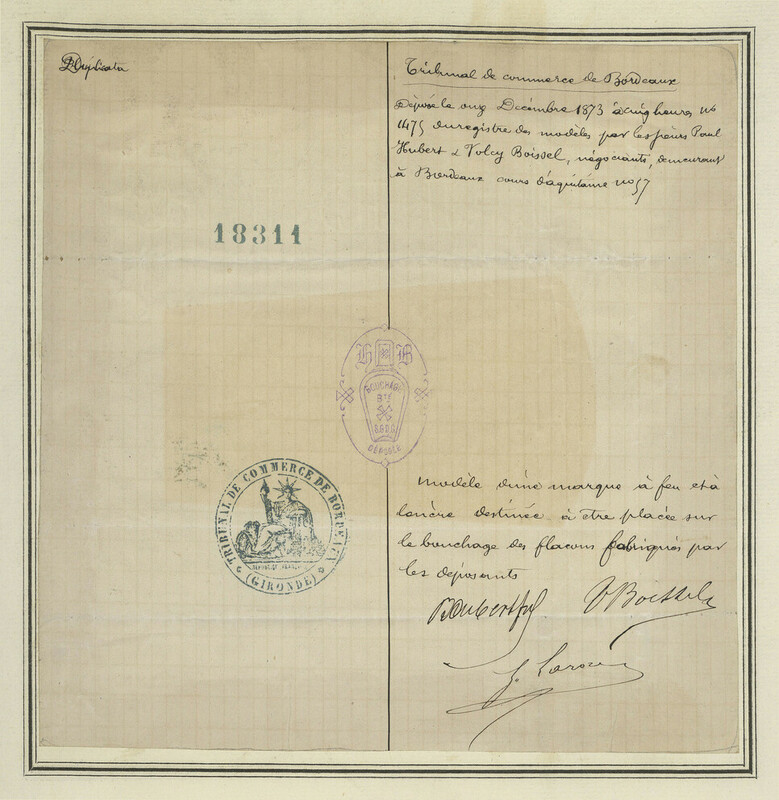 Duplicata
Tribunal de commerce de Bordeaux
Déposé le onze Décembre 1873 à cinq heures no
1475 du registre des modèles par les sieurs Paul
Hubert & Volcy Boissel, négociants, demeurant
à Bordeaux cours d'aquitaine no 57
18311
H B
BOUCHAGE
Bté
S.G.D.G
DÉPOSÉE
TRIBUNAL DE COMMERCE DE BORDEAUX
(GIRONDE)
modèle d'une marque à feu et à
l'encre destinée à être placée sur
le bouchage des flacons fabriqués par
les déposants
V Boissel